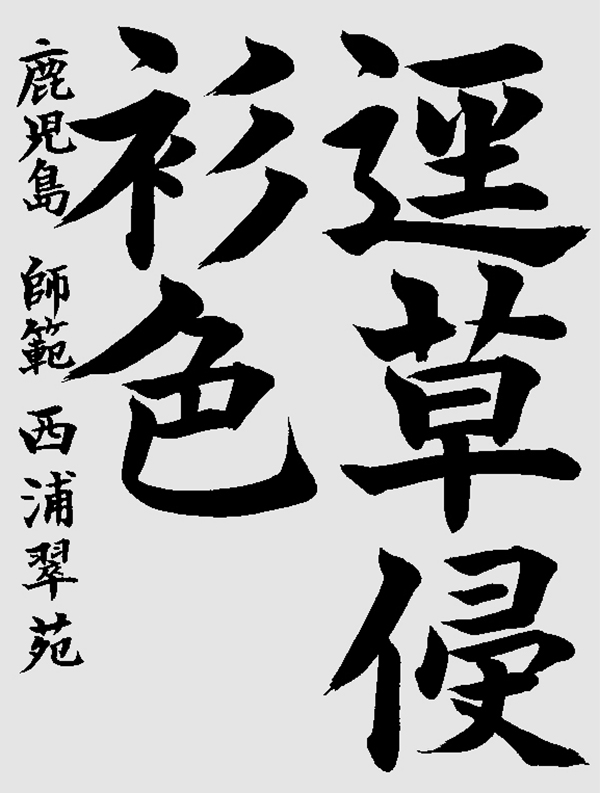 逕草侵
衫色
鹿児島 師範 西浦翠苑